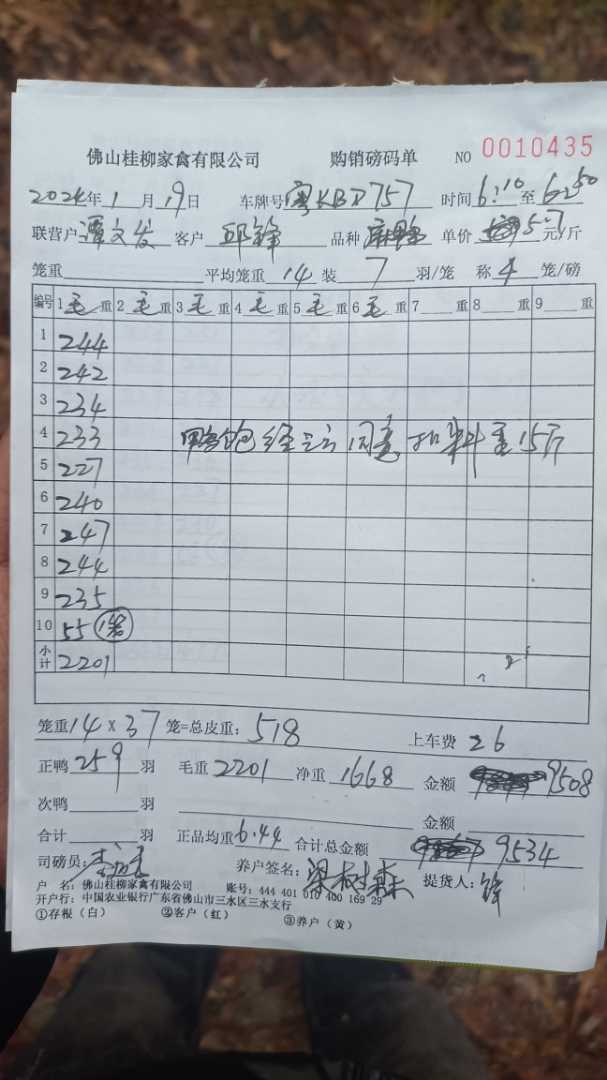 佛山桂柳家禽有限公司 购销磅码单 NO 0010435
2024年 1 月 19 日 车牌号 粤KBD757 时间 6:10 至 6:50
联营户 谭文发 客户 邱锋 品种 麻鸭 单价 5.7 元/斤
笼重 平均笼重 14 装 7 羽/笼 称 4 笼/磅
编号 1 毛 重 2 毛 重 3 毛 重 4 毛 重 5 毛 重 6 毛 重 7 重 8 重 9 重
1 244
2 242
3 234
4 233 鸭饱经 同意扣料重15斤
5 227
6 240
7 247
8 244
9 235
10 55 (1笼)
小计 2201
笼重 14 x 37 笼=总皮重: 518 上车费 26
正鸭 259 羽 毛重 2201 净重 1668 金额 9508
次鸭 羽 金额
合计 羽 正品均重 6.44 合计总金额 9534
司磅员: 养户签名: 梁树森 提货人: 锋
户 名: 佛山桂柳家禽有限公司 账号: 444 401 010 400 169 29
开户行: 中国农业银行广东省佛山市三水区三水支行
①存根(白) ②客户(红) ③养户(黄)